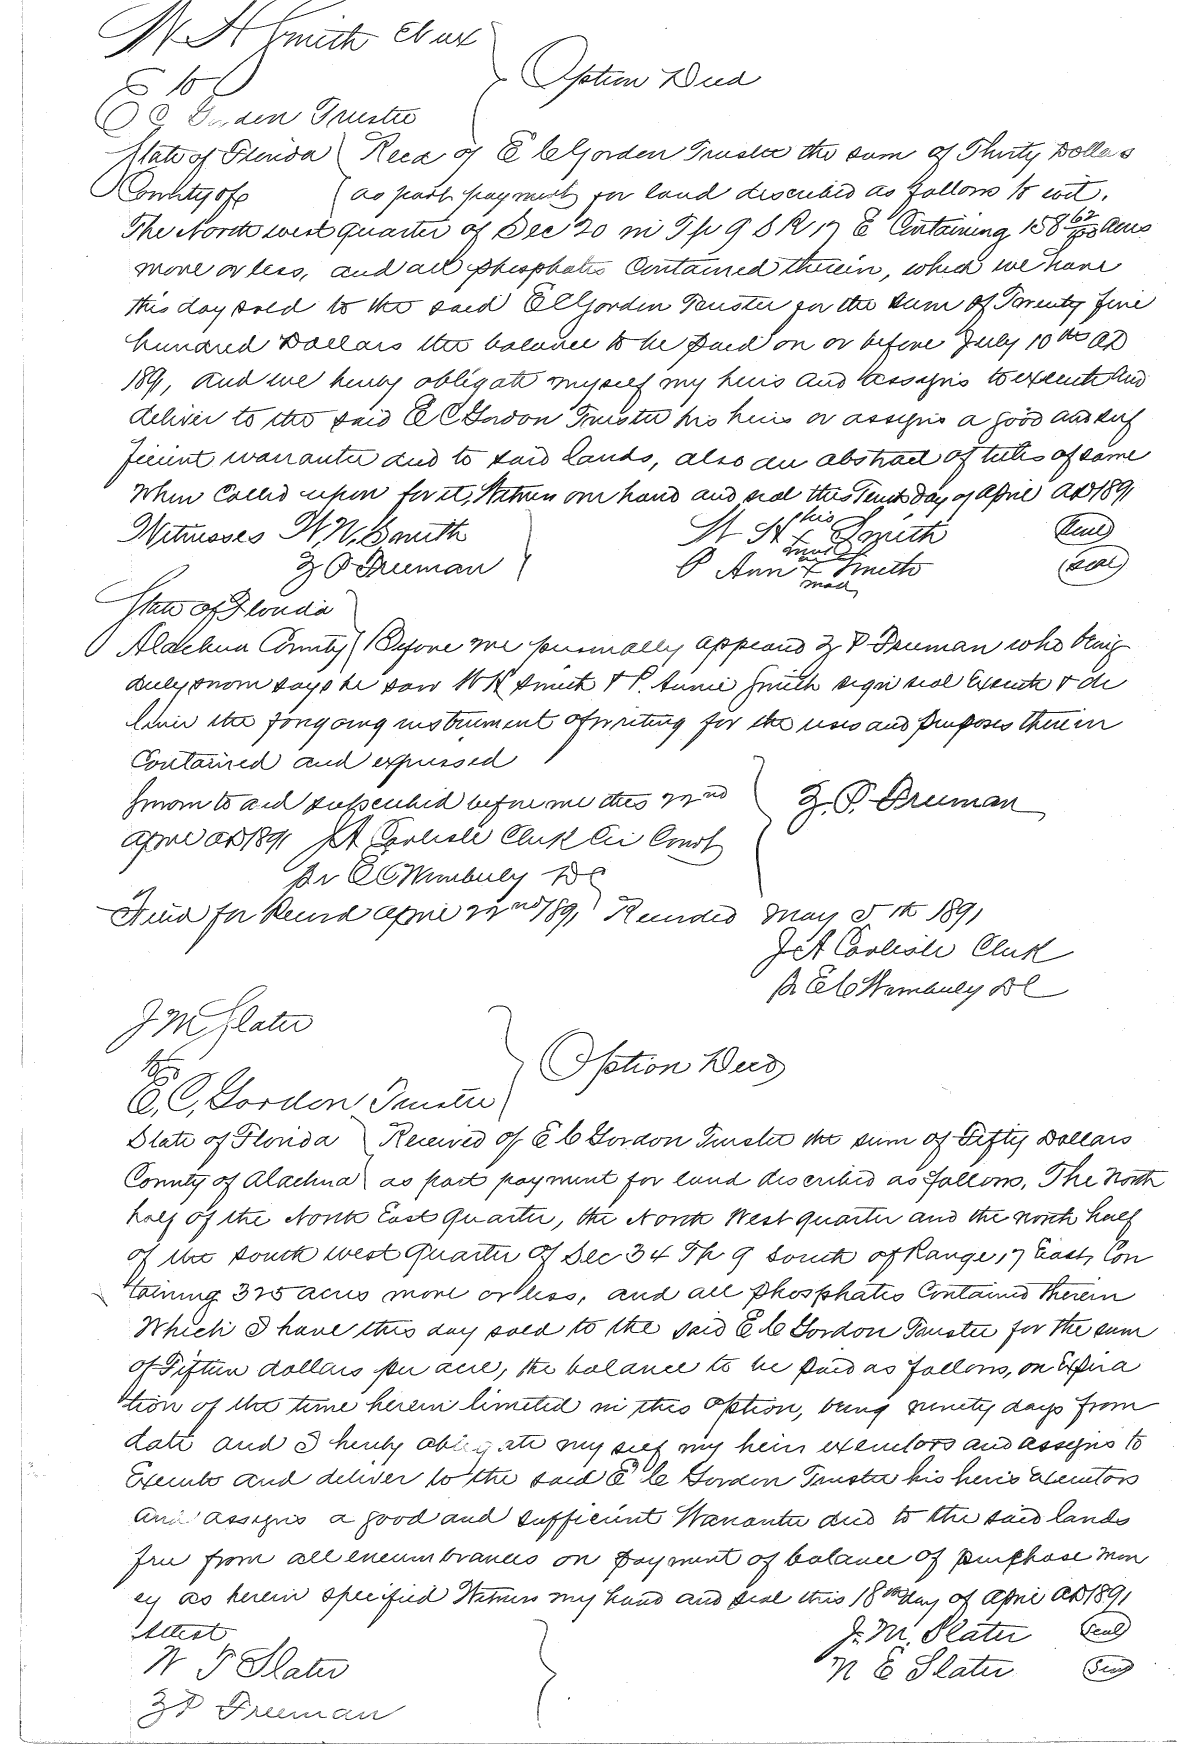 W H Smith et ux
to
E C Gorden Trustee
Option Deed
State of Florida Recd of E C Gorden Trustee the sum of Thirty Dollars
County of as part payment for land discribed as follows to wit.
The North west quarter of Sec 20 in Tp 9 S R 17 E Containing 158 62/100 acres
more or less, and all phosphates Contained therein, which we have
this day sold to the said E C Gorden Trustee for the sum of Twenty five
hundred Dollars the balance to be paid on or before July 10th AD
1891, and we hereby obligate myself my heirs and assigns to execute and
deliver to the said E C Gordon Trustee his heirs or assigns a good and suf
ficient warrantee deed to said lands, also an abstract of titles of same
when Called upon for it, Witness our hand and seal this Tenth day of April AD 1891
Witnesses W. N. Smith W H his x mark Smith Seal
Z P Freeman P Ann her x mark Smith Seal
State of Florida
Alachua County Before me personally appeared Z P Freeman who being
duly sworn says he saw W H Smith & P. Annie Smith sign seal Execute & de
liver the foregoing instrument of writing for the uses and purposes therein
Contained and expressed
Sworn to and subscribed before me this 22nd Z. P. Freeman
April AD 1891 J A Carlisle Clerk Cir Court
Br E C Wimberly DC
Filed for Record April 22nd 1891 Recorded May 5th 1891
J A Carlisle Clerk
Br E C Wimberly DC
J M Slater
to
E. C, Gordon Trustee
Option Deed
State of Florida Received of E C Gordon Trustee the sum of Fifty Dollars
County of Alachua as part payment for land discribed as follows. The North
half of the North East quarter, the North West quarter and the north half
of the south west quarter of Sec 34 Tp 9 South of Range 17 East, Con
taining 325 acres more or less, and all phosphates Contained therein
Which I have this day sold to the said E C Gordon Trustee for the sum
of Fifteen dollars per acre, the balance to be paid as follows, on Expira
tion of the time herein limited in this option, being ninety days from
date and I hereby obligate my self my heirs executors and assigns to
Execute and deliver to the said E C Gordon Trustee his heirs Executors
and assigns a good and sufficient Warrantee deed to the said lands
free from all encumbrances on payment of balance of purchase mon
ey as herein specified Witness my hand and seal this 18th day of April AD 1891
Attest J. M. Slater Seal
W T Slater N E Slater Seal
Z P Freeman